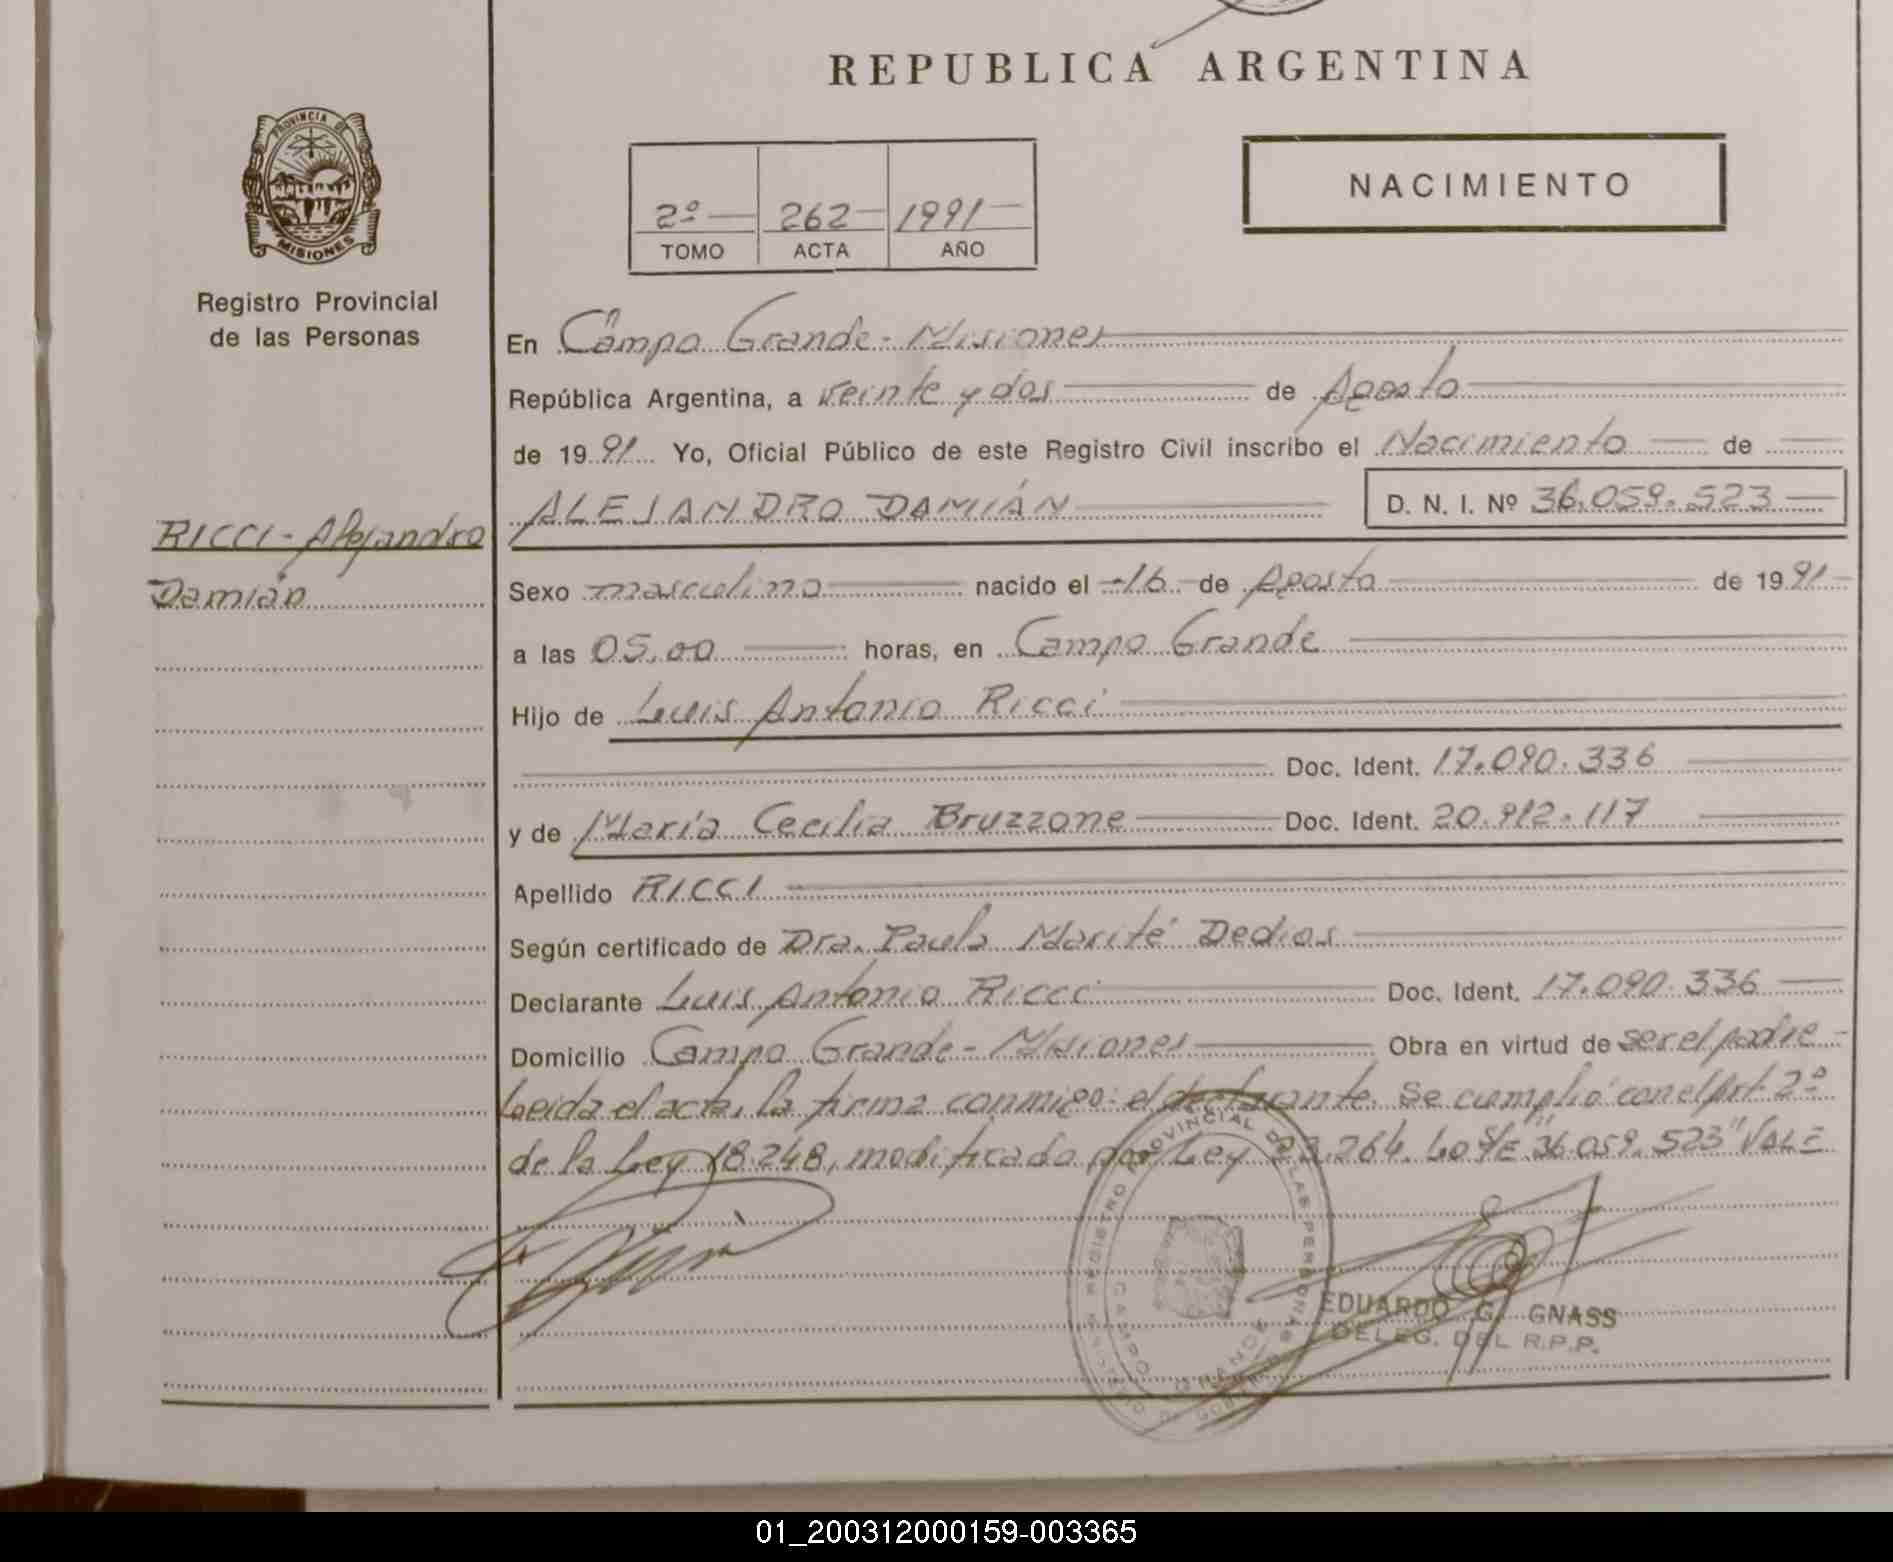 REPUBLICA ARGENTINA
PROVINCIA DE
MISIONES
Registro Provincial
de las Personas
2º 262 1991
TOMO ACTA AÑO
NACIMIENTO
En Campo Grande - Misiones
República Argentina, a veinte y dos de Agosto
de 1991 Yo, Oficial Público de este Registro Civil inscribo el Nacimiento de
ALEJANDRO DAMIÁN D. N. I. Nº 36.059.523
RICCI - Alejandro
Damián
Sexo masculino nacido el 16 de Agosto de 1991
a las 05,00 horas, en Campo Grande
Hijo de Luis Antonio Ricci
Doc. Ident. 17.090.336
y de María Cecilia Bruzzone Doc. Ident. 20.912.117
Apellido RICCI
Según certificado de Dra. Paula Marité Dedios
Declarante Luis Antonio Ricci Doc. Ident. 17.090.336
Domicilio Campo Grande - Misiones Obra en virtud de ser el padre
Leida el acta, la firma conmigo: el declarante. Se cumplió con el Art. 2º
de la Ley 18.248, modificado por Ley 23.264. Lo S/E "36.059.523" VALE
REGISTRO PROVINCIAL DE LAS PERSONAS
CAMPO GRANDE
EDUARDO G. GNASS
DELEG. DEL R.P.P.
01_200312000159-003365